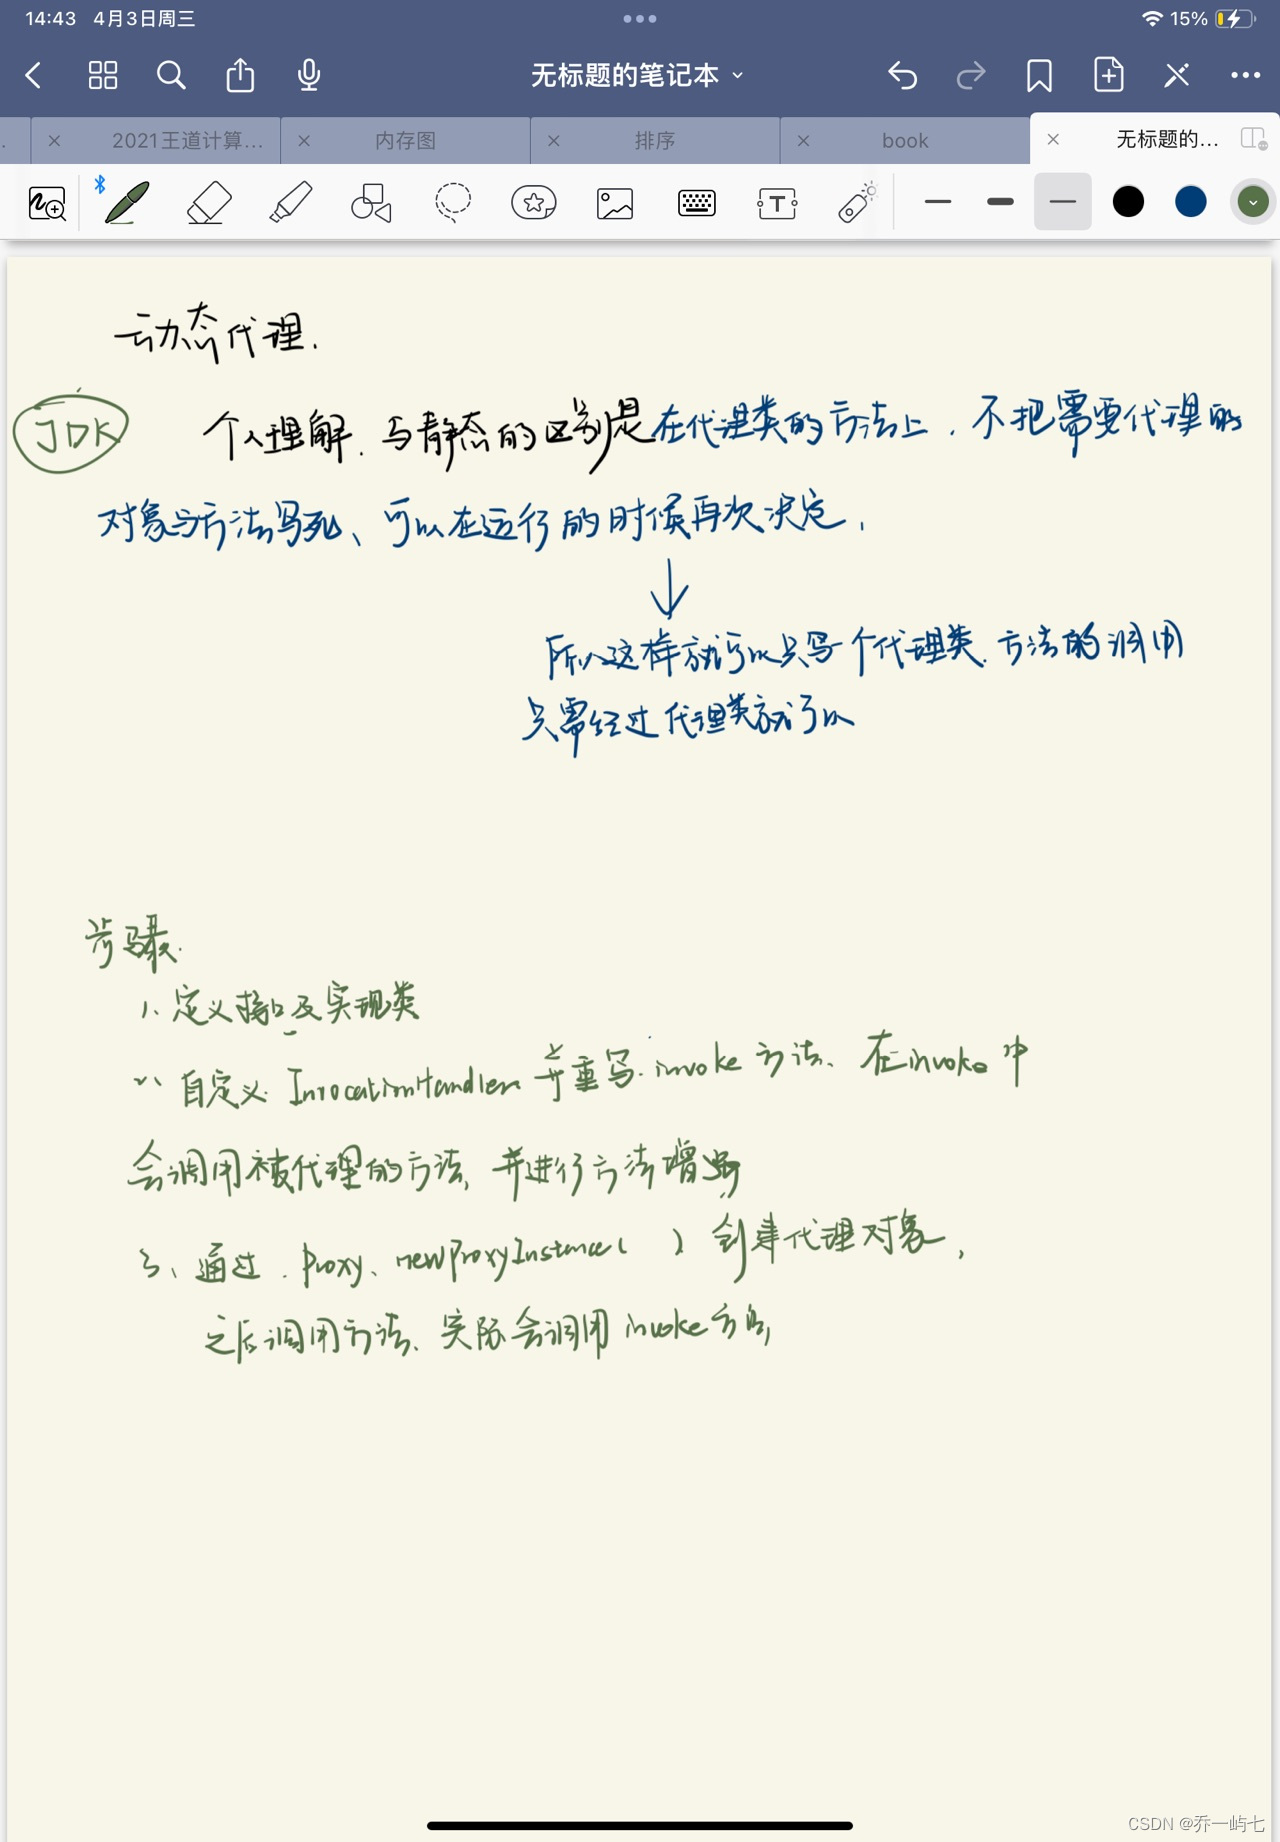 14:43 4月3日周三
15%
无标题的笔记本
2021王道计算...
内存图
排序
book
无标题的...
动态代理.
JDK
个人理解.与静态的区别是在代理类的方法上.不把需要代理的
对象与方法写死、可以在运行的时候再次决定,
所以这样就可以只写一个代理类.方法的调用
只需经过代理类就可以
步骤.
1、定义接口及实现类
2、自定义 InvocationHandler 并重写.invoke 方法、在invoke中
会调用被代理的方法,并进行方法增强
3、通过.Proxy、newProxyInstance( ) 创建代理对象,
之后调用方法、实际会调用invoke方法
CSDN @乔一屿七